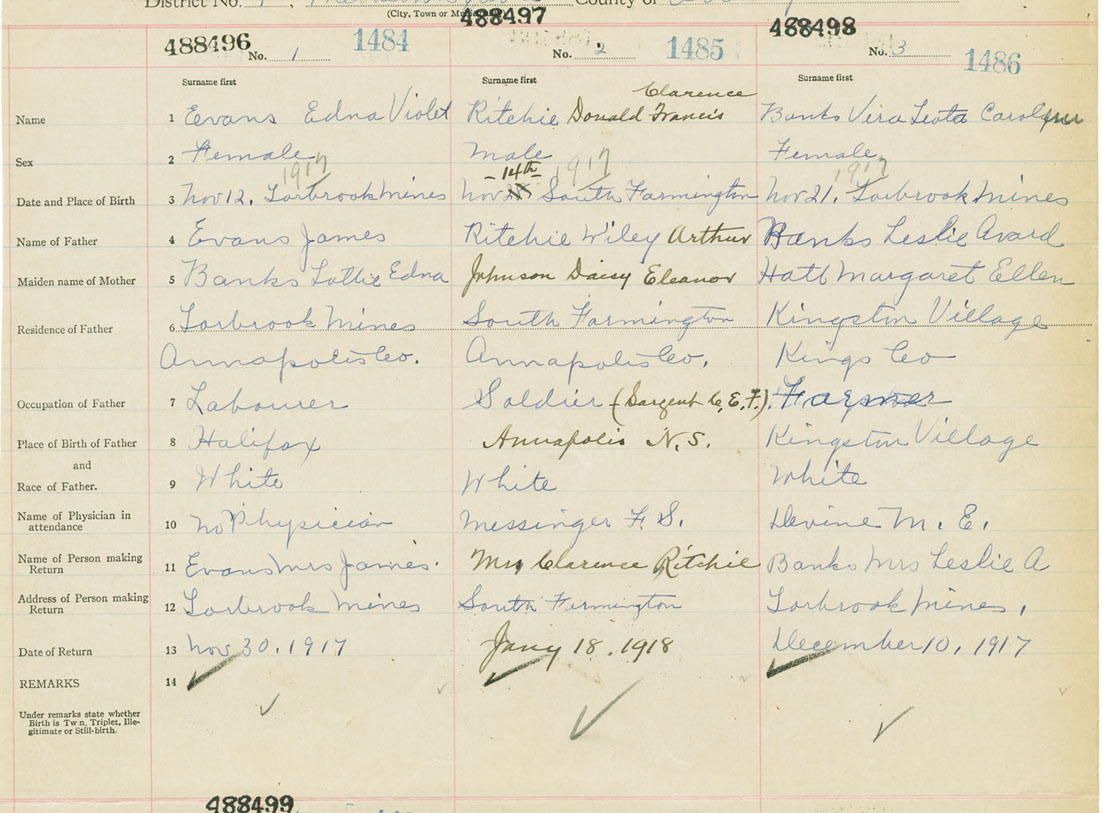 District No. County of
(City, Town or
488496 No. 1 1484 488497 No. 2 1485 488498 No. 3 1486
Surname first Surname first Surname first
Clarence
Name 1 Eevans Edna Violet Ritchie Donald Francis Banks Vira Leota
Sex 2 Female Male Female
1917 14th 1917 1917
Date and Place of Birth 3 Nov 12. Torbrook Mines Nov South Farmington Nov 21. Torbrook Mines
Name of Father 4 Evans James Ritchie Wiley Arthur Banks Leslie Avard
Maiden name of Mother 5 Banks Lottie Edna Johnson Daisy Eleanor Hatt Margaret Ellen
Residence of Father 6 Torbrook Mines South Farmington Kingston Village
Annapolis Co. Annapolis Co. Kings Co
Occupation of Father 7 Labourer Soldier (Sargent C.E.F.). Farmer
Place of Birth of Father 8 Halifax Annapolis N.S. Kingston Village
and
Race of Father. 9 White White White
Name of Physician in attendance 10 No Physician Messinger F. S. Devine M. E.
Name of Person making Return 11 Evans Mrs James. Mrs Clarence Ritchie Banks Mrs Leslie A
Address of Person making Return 12 Torbrook Mines South Farmington Torbrook Mines.
Date of Return 13 Nov 30. 1917 Jany 18. 1918 December 10. 1917
REMARKS 14
Under remarks state whether
Birth is Tw n, Triplet, Ille-
gitimate or Still-birth.
488499